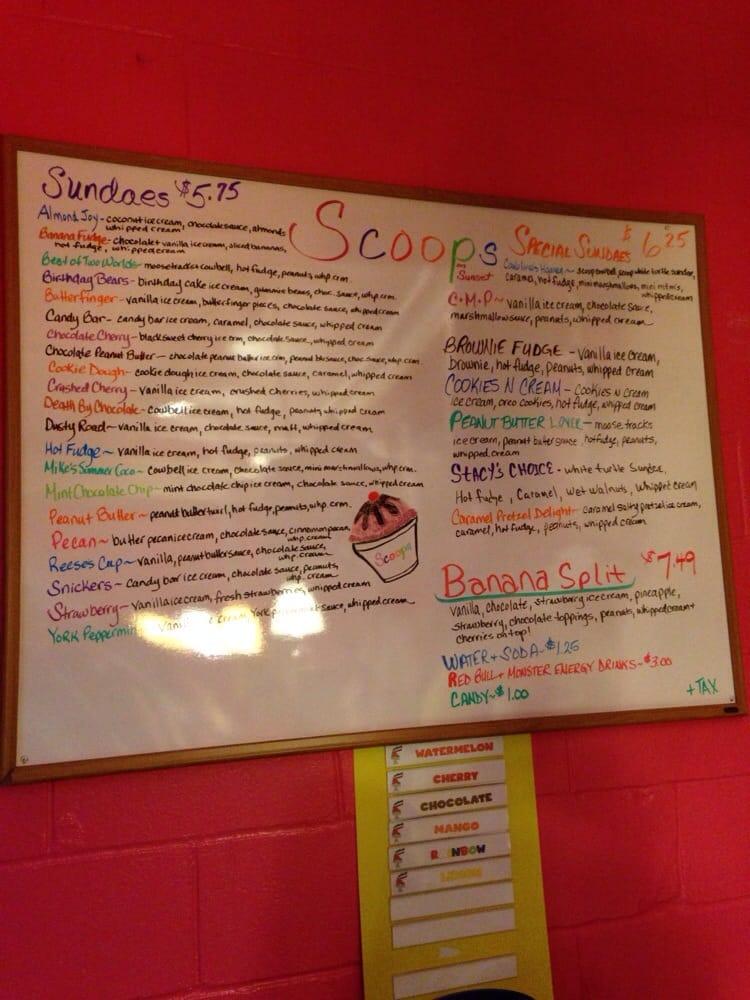 Sundaes $5.75
Almond Joy - coconut ice cream, chocolate sauce, almonds
whipped cream
Banana Fudge - chocolate + vanilla ice cream, sliced bananas,
hot fudge, whipped cream
Best of Two Worlds - moosetracks cowbell, hot fudge, peanuts, whp crm.
Birthday Bears - birthday cake ice cream, gummie bears, choc. sauce, whp crm.
Butterfinger - vanilla ice cream, butterfinger pieces, chocolate sauce, whipped cream
Candy Bar - candy bar ice cream, caramel, chocolate sauce, whipped cream
Chocolate Cherry - black sweet cherry ice crm, chocolate sauce, whipped cream
Chocolate Peanut Butter - chocolate peanut butter ice crm, peanut btr sauce, choc sauce, whp. crm.
Cookie Dough - cookie dough ice cream, chocolate sauce, caramel, whipped cream
Crushed Cherry - vanilla ice cream, crushed cherries, whipped cream
Death By Chocolate - cowbell ice cream, hot fudge, peanuts, whipped cream
Dusty Road ~ vanilla ice cream, chocolate sauce, malt, whipped cream
Hot Fudge ~ vanilla ice cream, hot fudge, peanuts, whipped cream
Mike's Summer Coco - cowbell ice cream, chocolate sauce, mini marshmallows, whp crm.
Mint Chocolate Chip - mint chocolate chip ice cream, chocolate sauce, whipped cream
Peanut Butter ~ peanut butter swirl, hot fudge, peanuts, whp. crm.
Pecan ~ butter pecan ice cream, chocolate sauce, cinnamon pecan,
whp. cream
Reeses Cup ~ vanilla, peanut butter sauce, chocolate sauce,
whp. cream
Snickers ~ Candy bar ice cream, chocolate sauce, peanuts,
whp. cream
Strawberry - vanilla ice cream, fresh strawberries, whipped cream
York Peppermint Vanilla ice cream, York peppermint sauce, whipped cream
Scoops
Sunset
Scoops
Special Sundaes $6.25
caramel, hot fudge, mini marshmallows, mini m+m's,
whipped cream
C.M.P ~ vanilla ice cream, chocolate sauce,
marshmallow sauce, peanuts, whipped cream
BROWNIE FUDGE - vanilla ice cream,
Brownie, hot fudge, peanuts, whipped cream
COOKIES N CREAM - cookies N cream
ice cream, oreo cookies, hot fudge, whipped cream
PEANUT BUTTER LOVER - moose tracks
ice cream, peanut butter sauce, hot fudge, peanuts,
whipped cream
STACY'S CHOICE - white turtle Sundae,
Hot fudge, Caramel, wet walnuts, whipped cream
Caramel Pretzel Delight - caramel salty pretzel ice cream,
caramel, hot fudge, peanuts, whipped cream
Banana Split $7.49
Vanilla, chocolate, strawberry ice cream, pineapple,
strawberry, chocolate toppings, peanuts, whipped cream +
cherries on top!
WATER + SODA - $1.25
RED BULL + MONSTER ENERGY DRINKS - $3.00
CANDY ~ $1.00
+ TAX
WATERMELON
CHERRY
CHOCOLATE
MANGO
RAINBOW